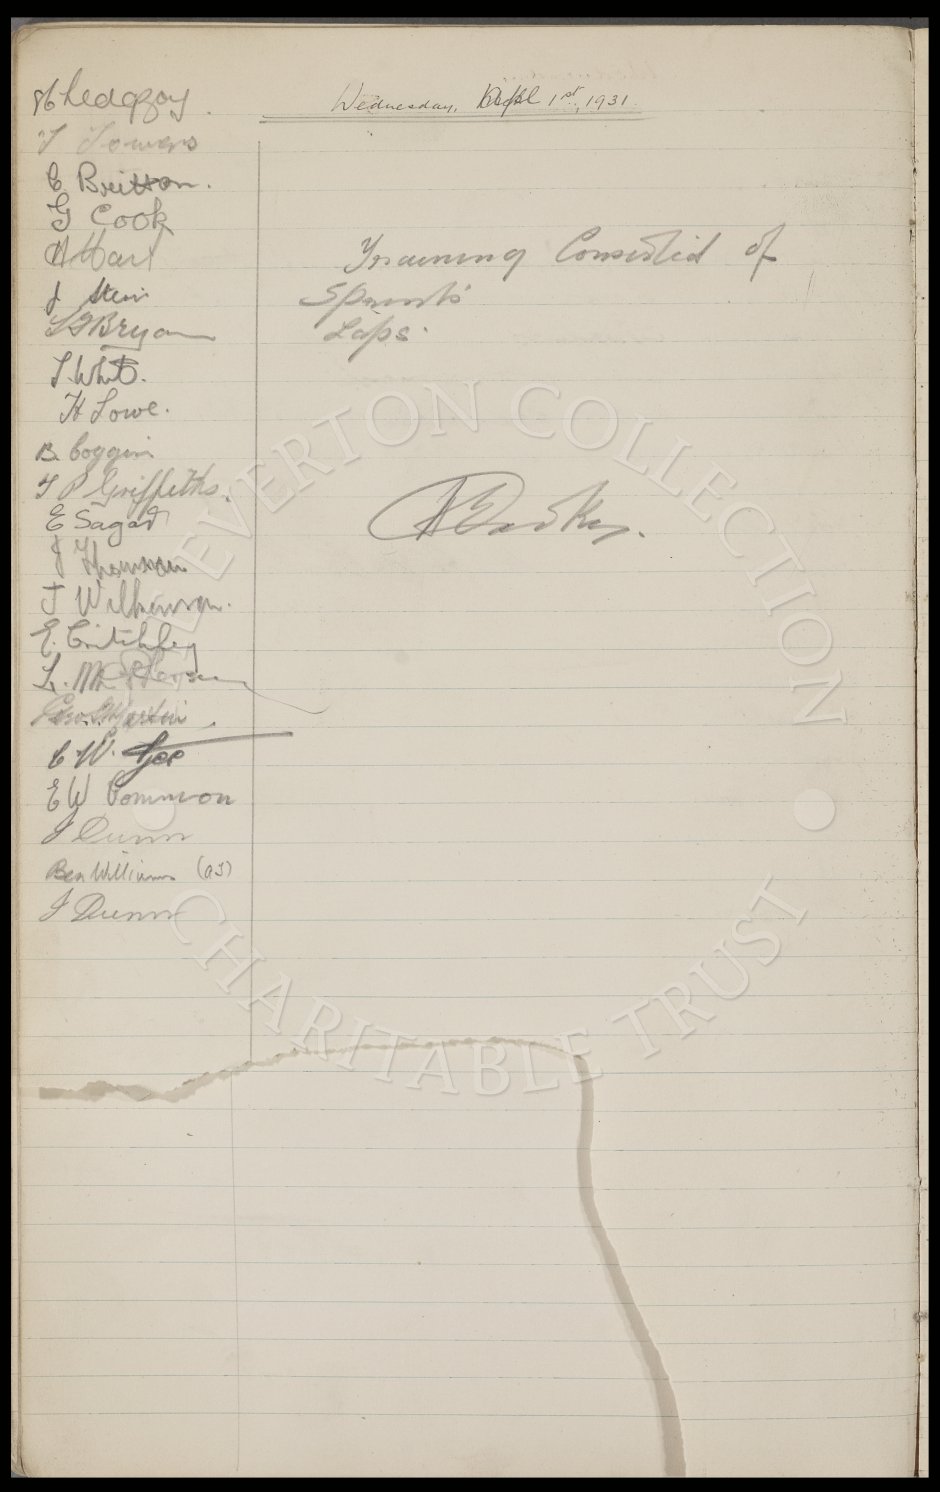 Wednesday, April 1st, 1931
T Towers
C Britton.
G Cook
H Hart
J Stein
Bryan
T. White.
H Lowe.
B. Coggin
T P Griffiths.
E Sagar
J Thomson
J Wilkinson.
E. Critchley
L. McPherson
Geo. Martin
C. W. Gee
E W Common
J Dunn
Ben Williams (as)
J Dunn
Training Consisted of
Sprints
Laps.
EVERTON COLLECTION
CHARITABLE TRUST